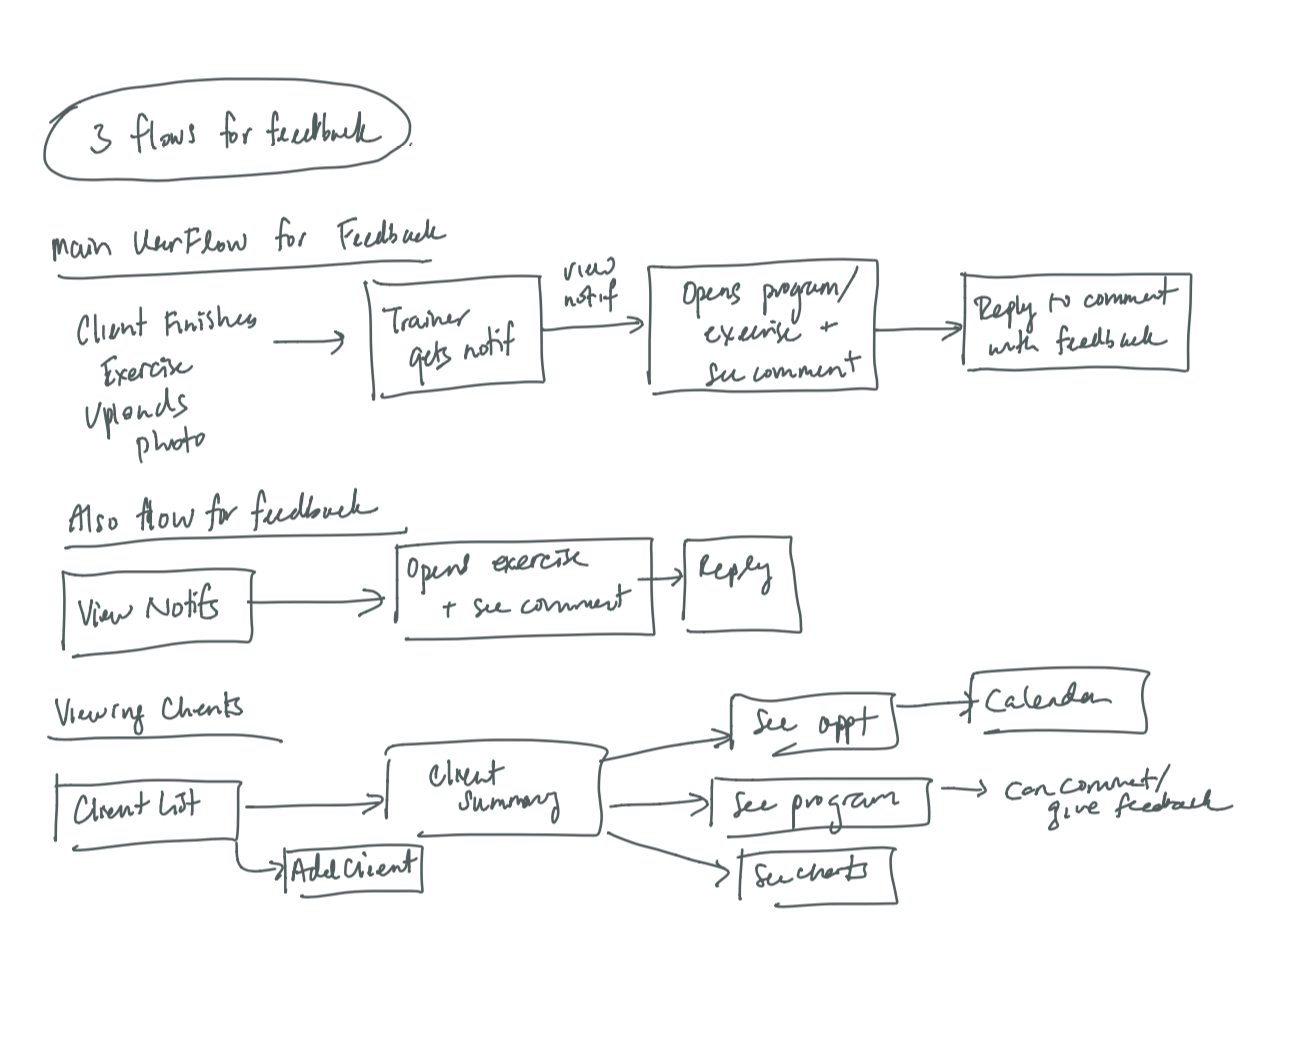 3 flows for feedback
Main UserFlow for Feedback
Client Finishes
Exercise
Uploads
photo
Trainer
gets notif
view
notif
Opens program/
exercise +
see comment
Reply to comment
with feedback
Also flow for feedback
View Notifs
Opens exercise
+ see comment
Reply
Viewing Clients
Client List
Add Client
Client
Summary
See appt
Calendar
See program
can comment/
give feedback
See charts